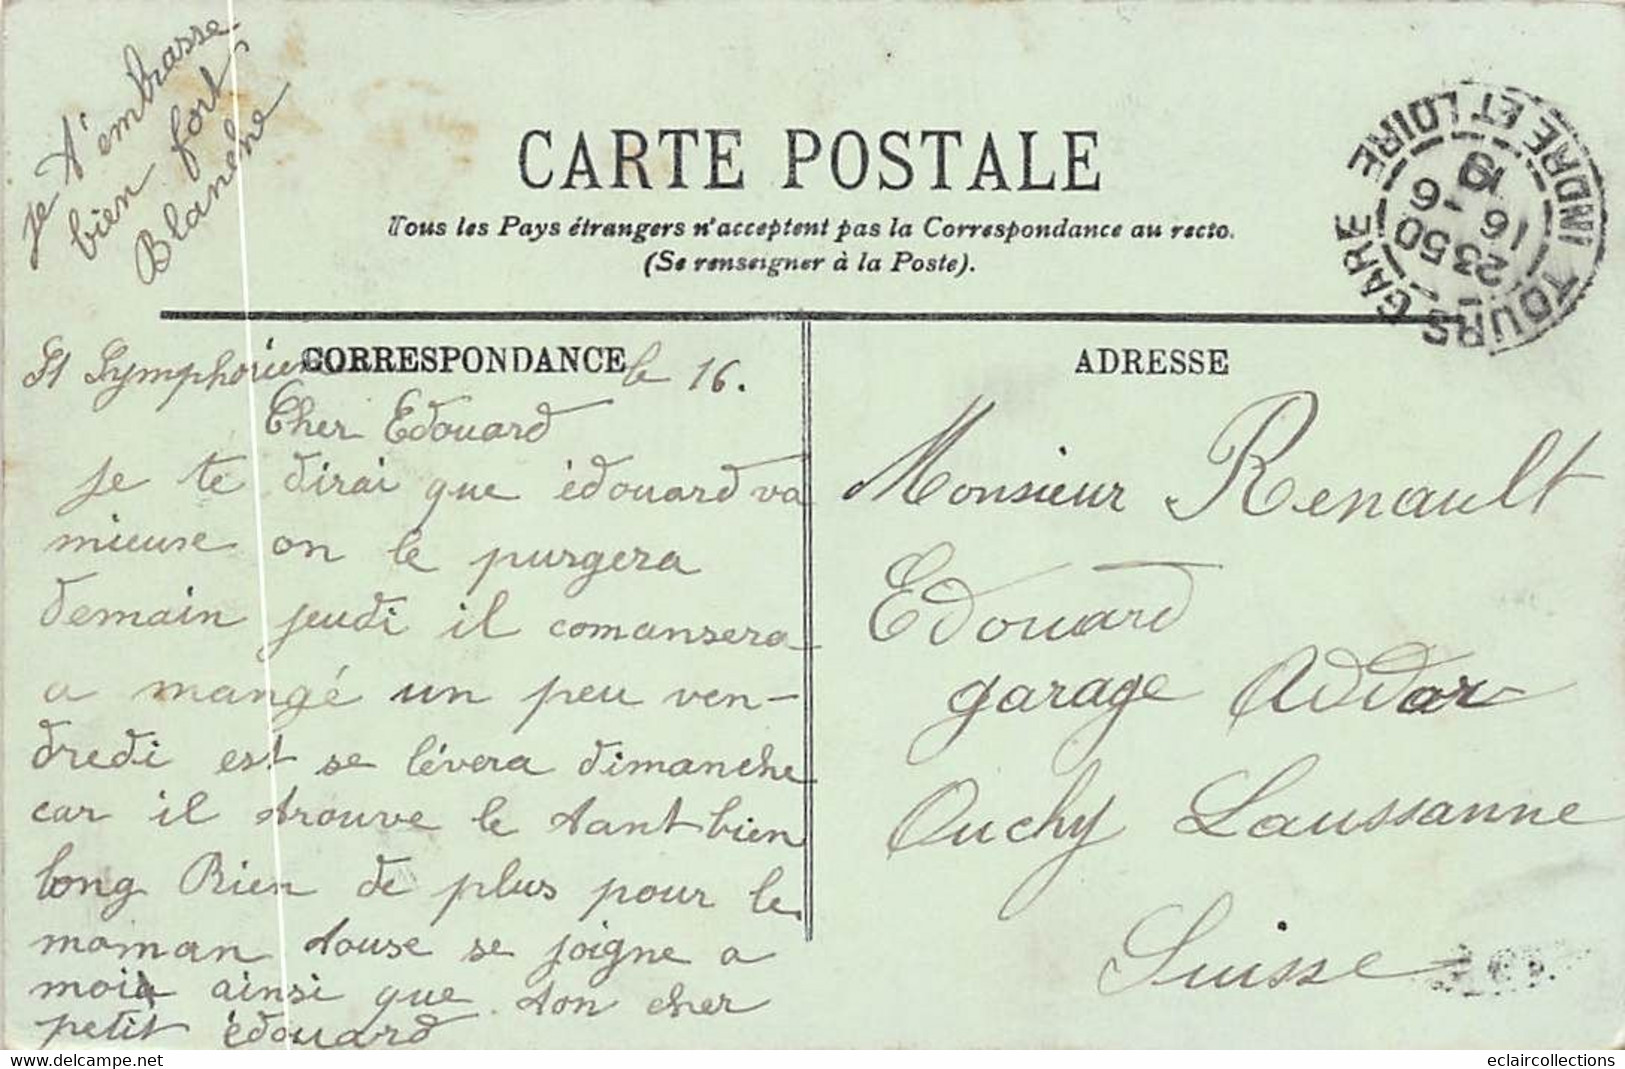 je t'embrasse
bien fort
Blanche
CARTE POSTALE
Tous les Pays étrangers n'acceptent pas la Correspondance au recto.
(Se renseigner à la Poste).
TOURS GARE INDRE ET LOIRE
23 50
16 - 6
19
CORRESPONDANCE
ADRESSE
St Symphorien le 16.
Cher Edouard
je te dirai que édouard va
mieuse on le purgera
demain jeudi il comansera
a mangé un peu ven-
dredi est se lévera dimanche
car il trouve le tant bien
long Rien de plus pour le
moman touse se joigne a
moia ainsi que ton cher
petit édouard
Monsieur Renault
Edouard
garage Addor
Ouchy Laussanne
Suisse
eclaircollections